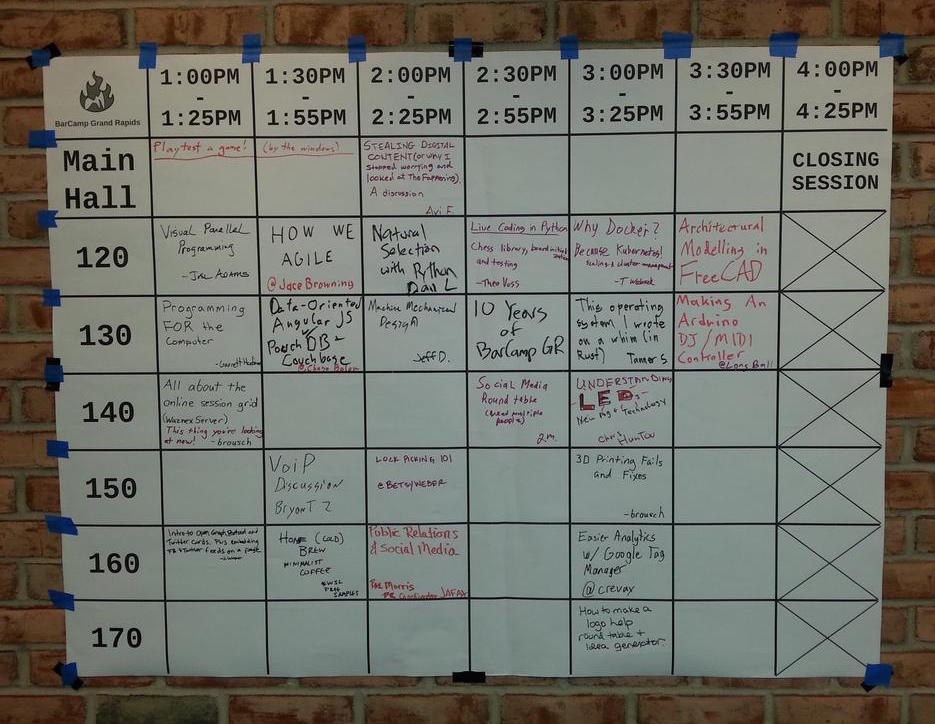 BarCamp Grand Rapids
1:00PM
-
1:25PM
1:30PM
-
1:55PM
2:00PM
-
2:25PM
2:30PM
-
2:55PM
3:00PM
-
3:25PM
3:30PM
-
3:55PM
4:00PM
-
4:25PM
Main
Hall
Playtest a game!
(by the windows)
STEALING DIGITAL
CONTENT (or why I
stopped worrying and
looked at The Fappening).
A discussion
Avi F.
CLOSING
SESSION
120
Visual Parallel
Programming
-Joel ADAMS
HOW WE
AGILE
@Jace Browning
Natural
Selection
with Python
Dan L
Live Coding in Python
Chess library,
and testing
-Theo Voss
Why Docker?
Because Kubernetes!
scaling & cluster management
Architectural
Modelling in
FreeCAD
130
Programming
FOR the
Computer
Data-Oriented
Angular JS
Pouch DB-
Couchbase
Machine Mechanical
Design
Jeff D.
10 Years
of
BarCamp GR
This operating
system I wrote
on a whim (in
Rust)
Tamer S
Making An
Arduino
DJ/MIDI
Controller
140
All about the
online session grid
(Waznex Server)
This thing you're looking
at now! -brousch
Social Media
Round table
(need multiple
people)
UNDERSTANDING
LEDs
New Technology
Chris
150
VoiP
Discussion
Bryan T Z
LOCK PICKING 101
@BETSYWEBER
3D Printing Fails
and Fixes
-brousch
160
Intro to Open Graph, and
Twitter Cards. Plus embedding
FB & Twitter feeds on a page
HOME (COLD)
BREW
MINIMALIST
COFFEE
FREE
SAMPLES
Public Relations
& Social Media
Morris
PR Coordinator JAFAX
Easier Analytics
w/ Google Tag
Manager
@crevax
170
How to make a
logo help
round table +
idea generator.